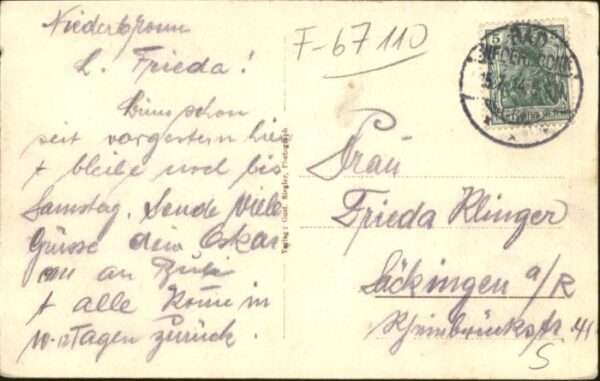 Niederbronn
L. Frieda!
Bin schon
seit vorgestern hier
+ bleibe noch bis
Samstag. Sende viele
Grüsse dein Oskar
an
+ alle Komm in
10-12 Tagen zurück.
F-67110
Verlag: Gust. Siegler, Photograph
5
BAD
NIEDERBRONN
Frau
Frieda Klinger
Säckingen a/R
Rheinbrückstr. 41
S